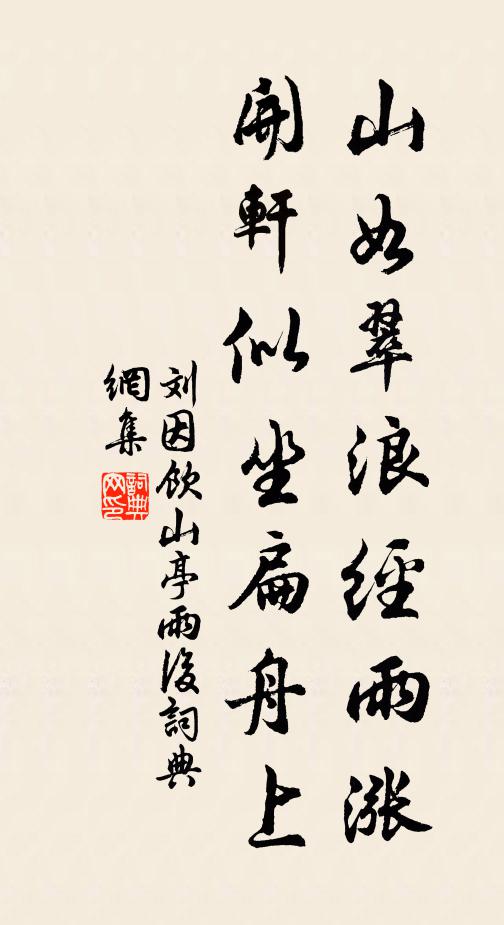 山如翠浪經雨漲
開軒似坐扁舟上
刘因飲山亭雨後詞典
網集
詞典网印